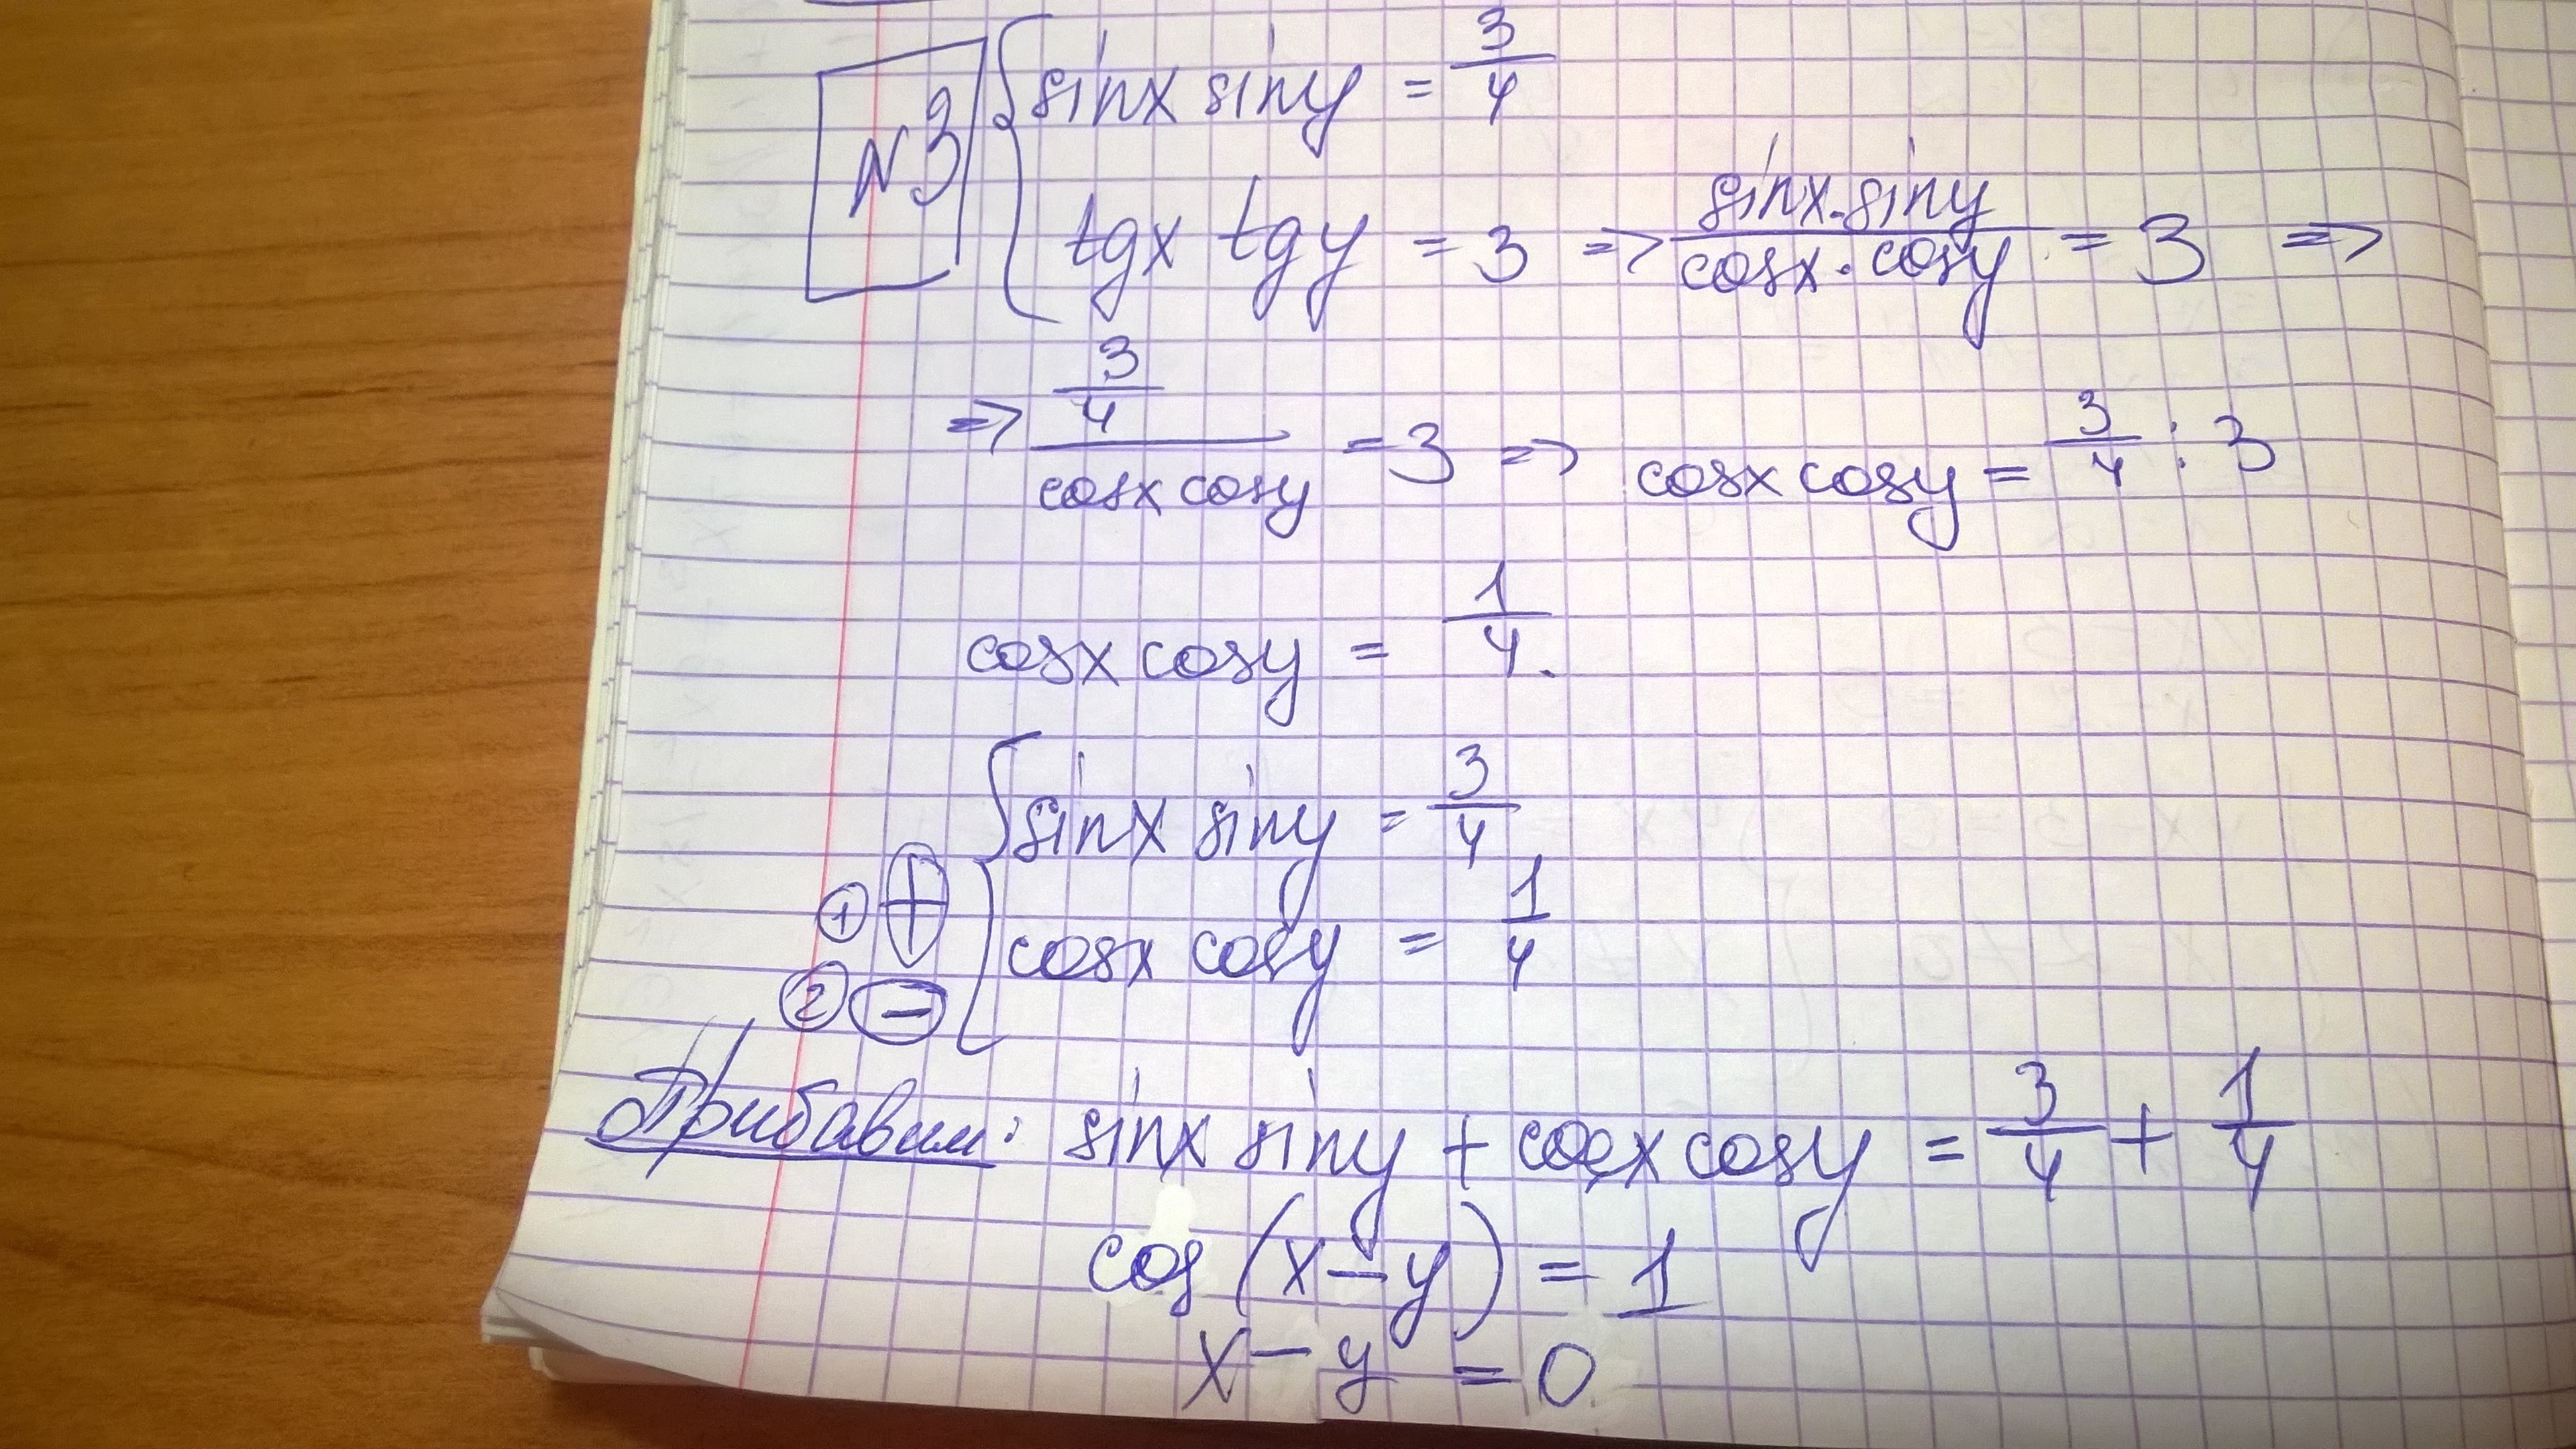 №3 { sinx siny = 3/4
tgx tgy = 3 => sinx·siny / cosx·cosy = 3 =>
=> 3/4 / cosx cosy = 3 => cosx cosy = 3/4 : 3
cosx cosy = 1/4.
{ sinx siny = 3/4
① ⊕ cosx cosy = 1/4
② ⊖
Прибавим: sinx siny + cosx cosy = 3/4 + 1/4
cos (x-y) = 1
x - y = 0